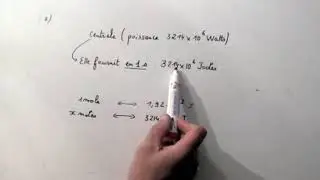 a)
centrale ( puissance 3214 × 10⁶ Watts)
Elle fournit en 1 s 3214 × 10⁶ Joules
1 mole ⟷ 1,9 J
x moles ⟷ 3214